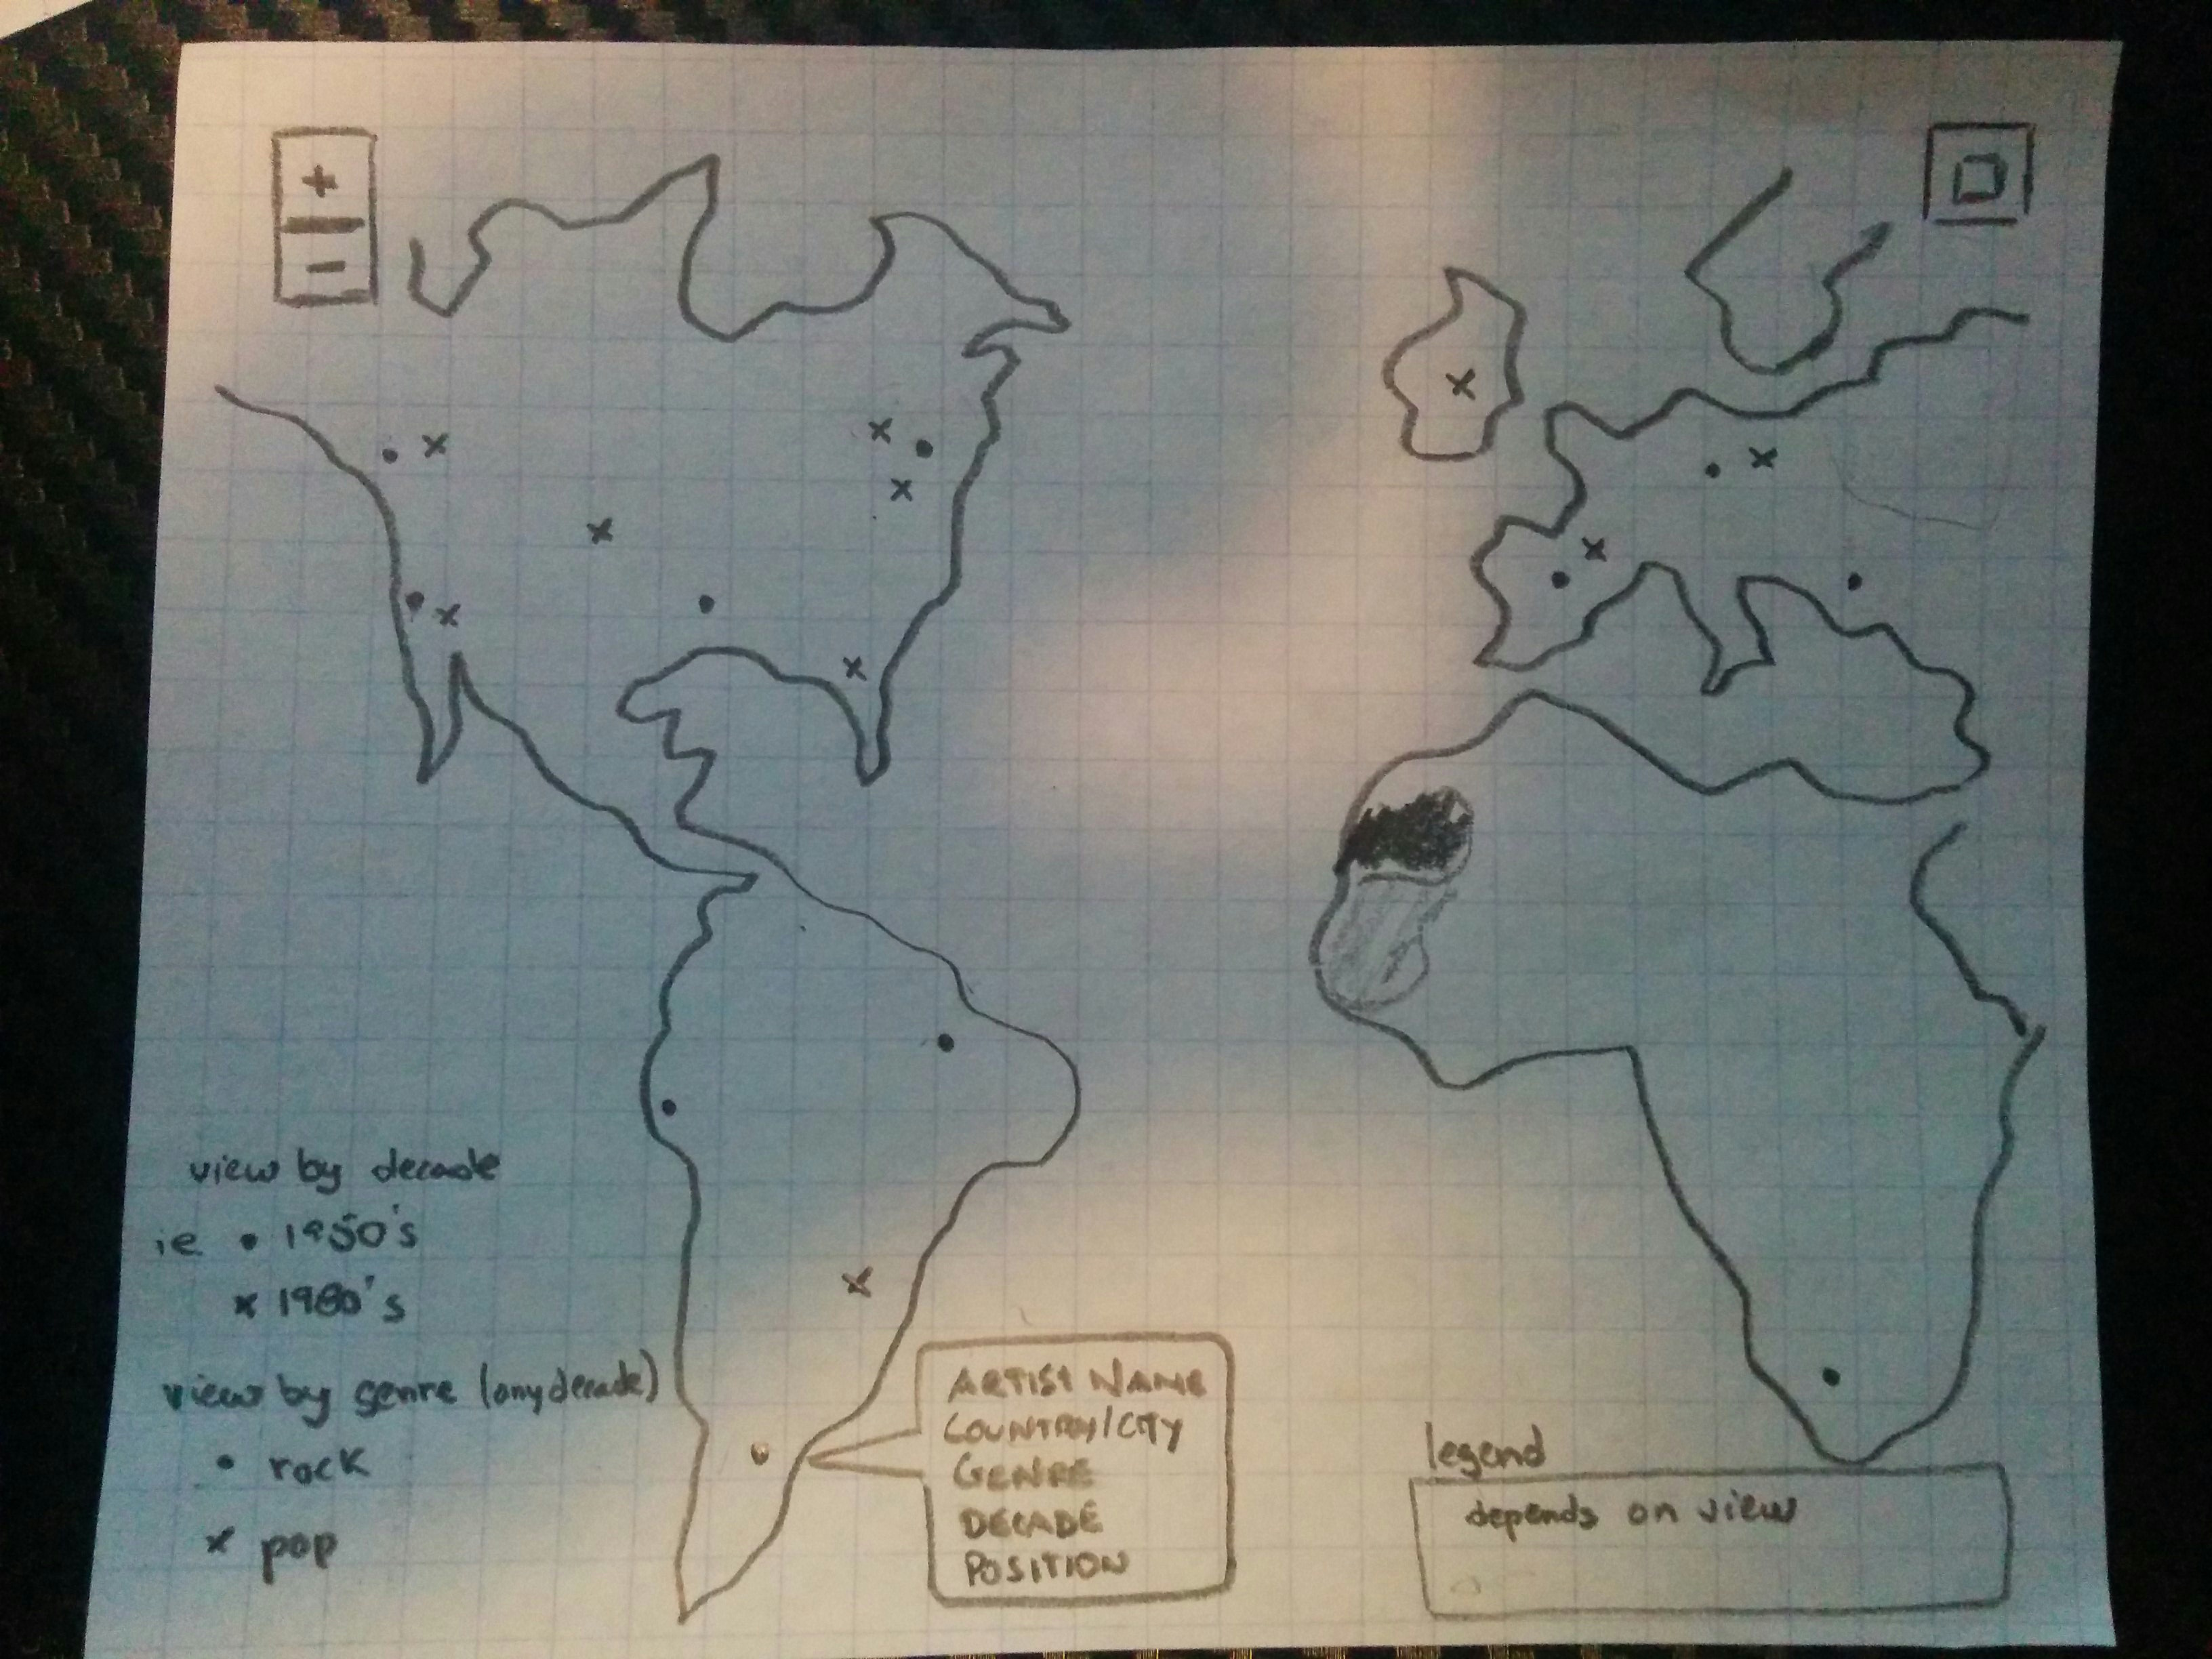 +
-
view by decade
ie • 1950's
x 1980's
view by genre (any decade)
• rock
x pop
ARTIST NAME
COUNTRY/CITY
GENRE
DECADE
POSITION
legend
depends on view